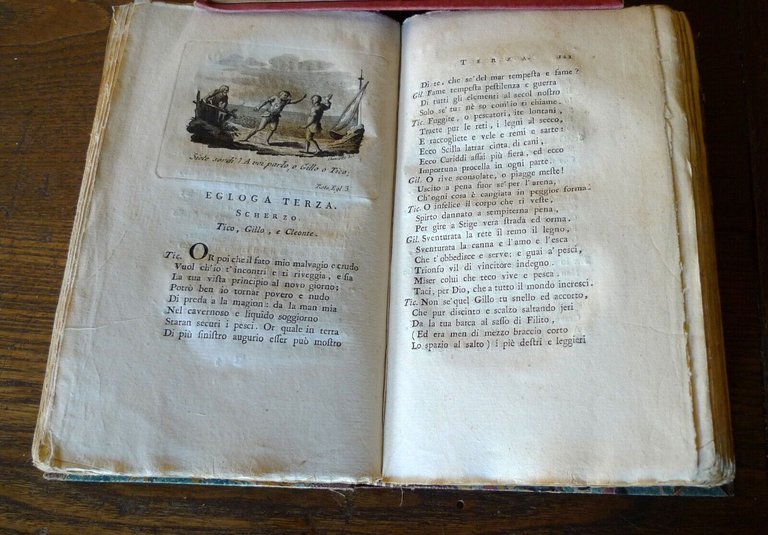 Siete sordi? A voi parlo, o Gillo o Tico.
Rota Egl. 3.
EGLOGA TERZA.
SCHERZO.
Tico, Gillo, e Cleonte.
Tic. OR poi che il fato mio malvagio e crudo
Vuol ch'io t'incontri e ti riveggia, e sia
La tua vista principio al novo giorno;
Potrò ben io tornar povero e nudo
Di preda a la magion: da la man mia
Nel cavernoso e liquido soggiorno
Staran securi i pesci. Or quale in terra
Di più sinistro augurio esser può mostro
TERZA.
Di te, che se' del mar tempesta e fame?
Gil. Fame tempesta pestilenza e guerra
Di tutti gli elementi al secol nostro
Solo se' tu: nè so com'io ti chiame.
Tic. Fuggite, o pescatori, ite lontani,
Traete pur le reti, i legni al secco,
E raccogliete e vele e remi e sarte:
Ecco Scilla latrar cinta di cani,
Ecco Cariddi assai più fiera, ed ecco
Importuna procella in ogni parte.
Gil. O rive sconsolate, o piagge meste!
Uscito a pena fuor se' per l'arena,
Ch'ogni cosa è cangiata in peggior forma:
Tic. O infelice il corpo che ti veste,
Spirto dannato a sempiterna pena,
Per gire a Stige vera strada ed orma.
Gil. Sventurata la rete il remo il legno,
Sventurata la canna e l'amo e l'esca
Che t'obbedisce e serve; e guai a' pesci,
Trionfo vil di vincitore indegno.
Miser colui che teco vive e pesca.
Taci, per Dio, che a tutto il mondo incresci.
Tic. Non se' quel Gillo tu snello ed accorto,
Che pur discinto e scalzo saltando jeri
Da la tua barca al sasso di Filito,
(Ed era men di mezzo braccio corto
Lo spazio al salto) i piè destri e leggieri